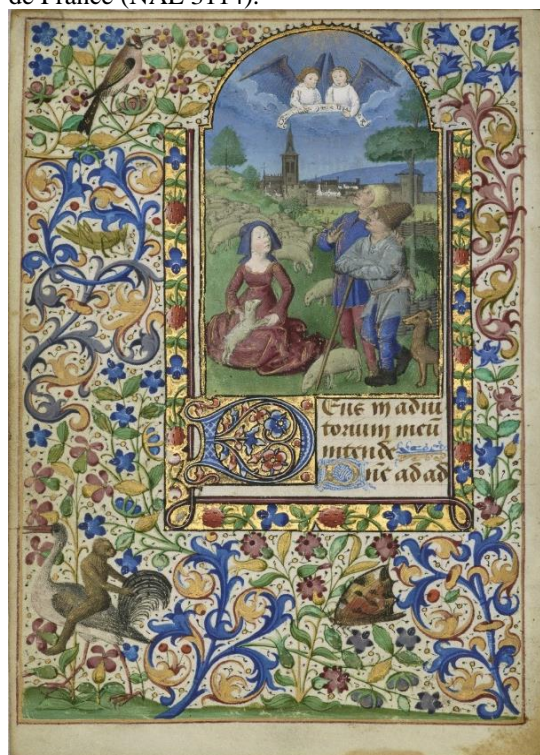 de France (NAL 3114).
Deus in adiu
torium meū
intende
Dñe ad ad